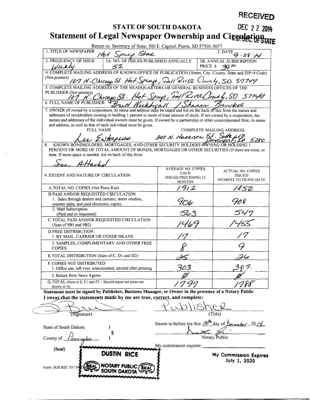 RECEIVED
DEC 22 2014
SEC. OF STATE
STATE OF SOUTH DAKOTA
Statement of Legal Newspaper Ownership and Circulation
Return to: Secretary of State, 500 E. Capitol, Pierre, SD 57501-5077
1. TITLE OF NEWSPAPER Hot Springs Star
2. DATE
3. FREQUENCY OF ISSUE Weekly
3A. NO. OF ISSUES PUBLISHED ANNUALLY 52
3B. ANNUAL SUBSCRIPTION PRICE $
4. COMPLETE MAILING ADDRESS OF KNOWN OFFICE OF PUBLICATION (Street, City, County, State and ZIP+4 Code)
(Not printers) 107 N. Chicago St. Hot Springs, Fall River County, SD 57747
5. COMPLETE MAILING ADDRESS OF THE HEADQUARTERS OR GENERAL BUSINESS OFFICES OF THE
PUBLISHER (Not printers) 107 N Chicago St. Hot Springs, Fall River County, SD 57747
6. FULL NAME OF PUBLISHER:
7. OWNER (If owned by a corporation, its name and address must be stated and list on the back of this form the names and
addresses of stockholders owning or holding 1 percent or more of total amount of stock. If not owned by a corporation, the
names and addresses of the individual owners must be given. If owned by a partnership or other unincorporated firm, its name
and address, as well as that of each individual must be given.
FULL NAME
COMPLETE MAILING ADDRESS
Lee Enterprises
8. KNOWN BONDHOLDERS, MORTGAGEES, AND OTHER SECURITY HOLDERS OWNING OR HOLDING 1
PERCENT OR MORE OF TOTAL AMOUNT OF BONDS, MORTGAGES OR OTHER SECURITIES (If there are none, so
state. If more space is needed, list on back of this form.
See Attached
9. EXTENT AND NATURE OF CIRCULATION
AVERAGE NO. COPIES EACH ISSUE DURING PRECEDING 12 MONTHS
ACTUAL NO. COPIES ISSUED NEAREST TO FILING DATE
A. TOTAL NO. COPIES (Net Press Run) 1912 1852
B. PAID AND/OR REQUESTED CIRCULATION
1. Sales through dealers and carriers, street vendors,
counter sales, and paid electronic copies 906 908
2. Mail Subscription
(Paid and or requested) 563 547
C. TOTAL PAID AND/OR REQUESTED CIRCULATION
(Sum of 9B1 and 9B2) 1469 1455
D. FREE DISTRIBUTION
1. BY MAIL, CARRIER OR OTHER MEANS 17 17
2. SAMPLES, COMPLIMENTARY AND OTHER FREE
COPIES 8 9
E. TOTAL DISTRIBUTION (Sum of C, D1 and D2) 25 26
F. COPIES NOT DISTRIBUTED
1. Office use, left over, unaccounted, spoiled after printing 303 307
2. Return from News Agents
G. TOTAL (Sum of E, F1 and F2 – Should equal net press run
shown in A) 1797 1788
Statement must be signed by Publisher, Business Manager, or Owner in the presence of a Notary Public
I swear that the statements made by me are true, correct, and complete:
Publisher
(Signature)
(Title)
State of South Dakota )
County of Pennington )
Sworn to before me this day of December, 2014
Notary Public
(Seal)
My commission expires:
Form: SOS REC 051
DUSTIN RICE
SEAL NOTARY PUBLIC SEAL
SOUTH DAKOTA
My Commission Expires
July 1, 2020